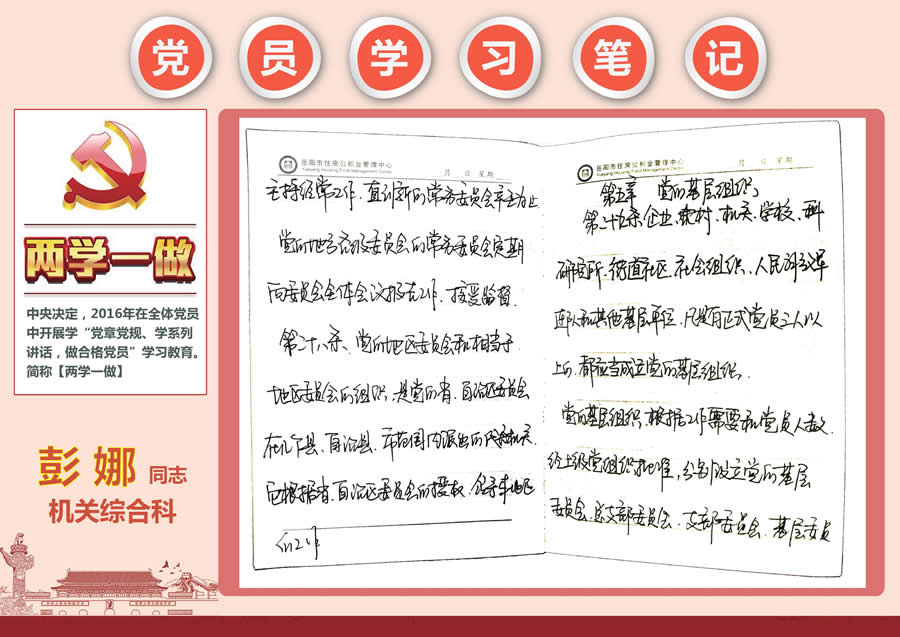 党员学习笔记
两学一做
中央决定，2016年在全体党员
中开展学“党章党规、学系列
讲话，做合格党员”学习教育。
简称【两学一做】
彭娜 同志
机关综合科
岳阳市住房公积金管理中心
Yueyang Housing Fund Management Center
月 日 星期
主持经常工作，直到新的常务委员会产生为止
党的地方各级委员会的常务委员会定期
向委员会全体会议报告工作，接受监督。
第二十八条、党的地区委员会和相当于
地区委员会的组织，是党的省、自治区委员会
在几个县、自治县、市范围内派出的代表机关。
它根据省、自治区委员会的授权，领导本地区
的工作
岳阳市住房公积金管理中心
Yueyang Housing Fund Management Center
月 日 星期
第五章 党的基层组织
第二十九条企业、农村、机关、学校、科
研院所、街道社区、社会组织、人民解放军
连队和其他基层单位，凡是有正式党员三人以
上的，都应当成立党的基层组织。
党的基层组织，根据工作需要和党员人数，
经上级党组织批准，分别设立党的基层
委员会、总支部委员会、支部委员会。基层委员